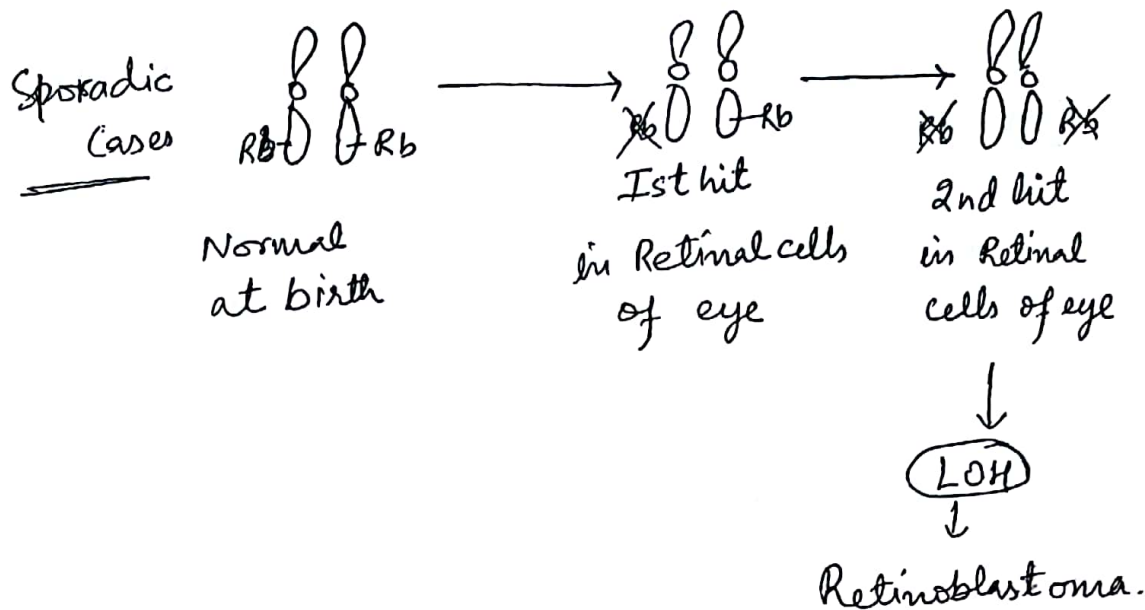 Sporadic
Cases
Rb Rb
Normal
at birth
Rb Rb
Ist hit
in Retinal cells
of eye
Rb Rb
2nd hit
in Retinal
cells of eye
LOH
Retinoblastoma.